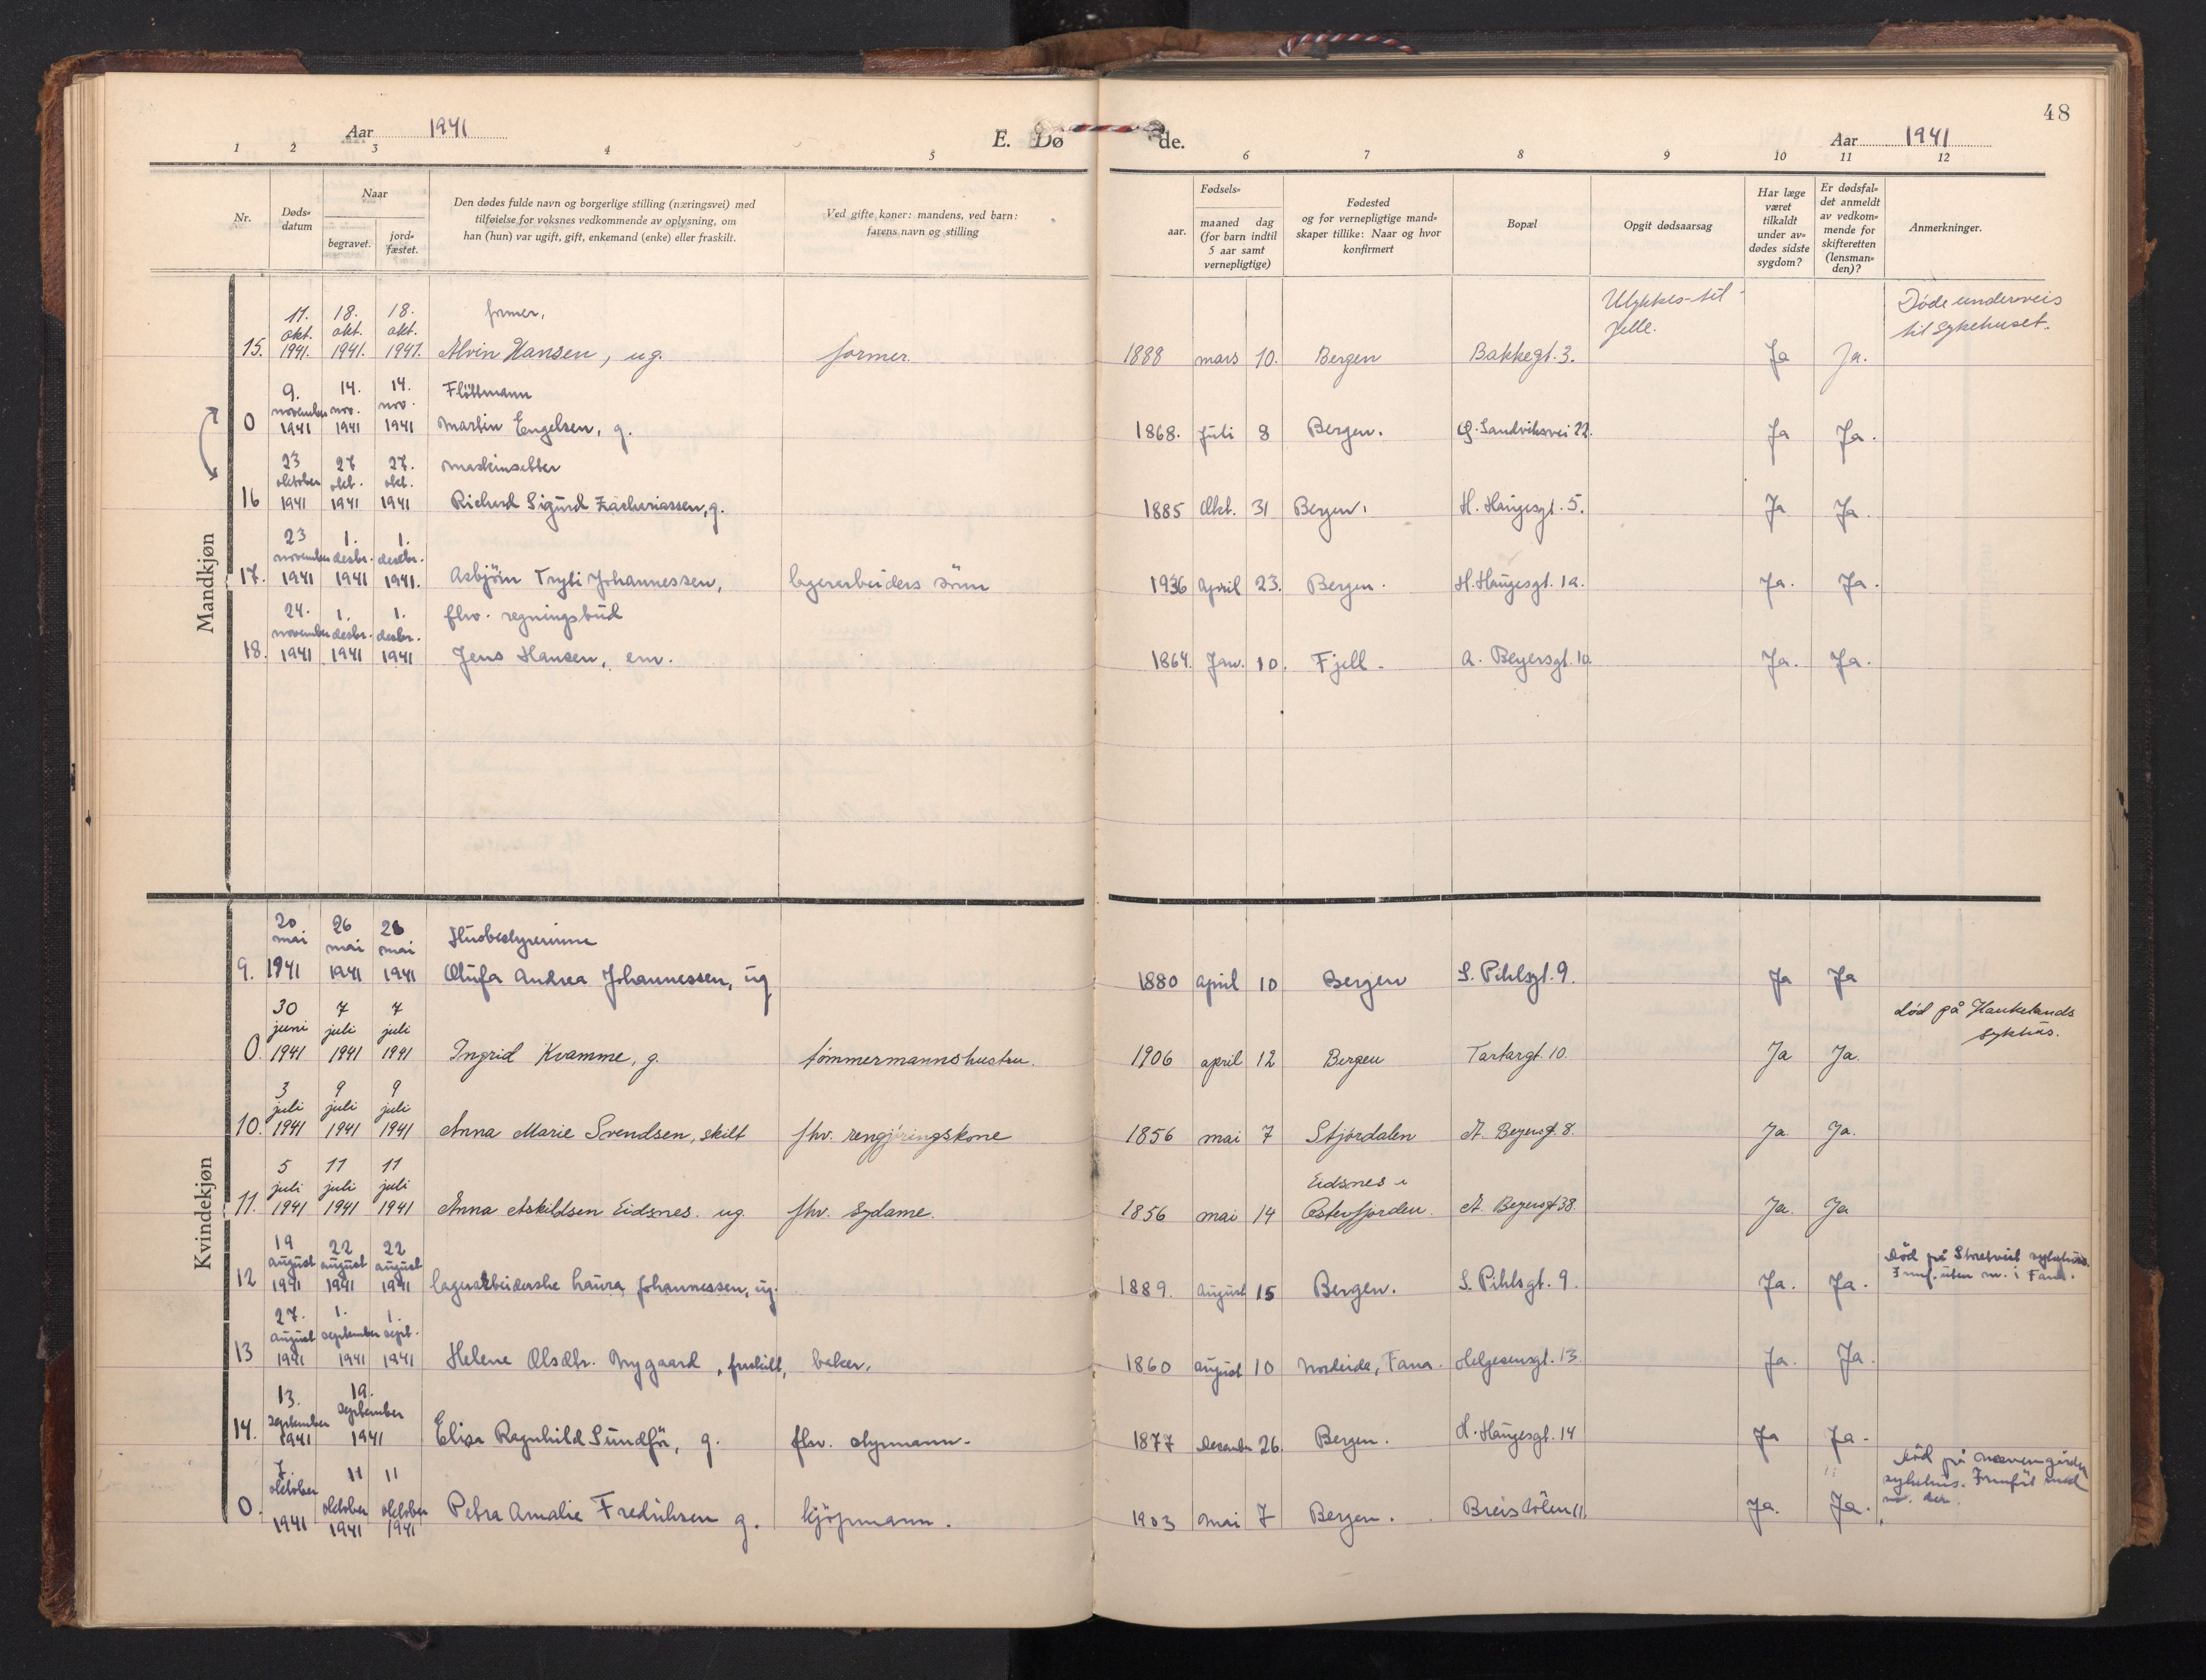 48
Aar 1941
E. Dø
de.
Aar 1941
1 2 3 4 5 6 7 8 9 10 11 12
Nr.
Døds-
datum
Naar
begravet.
jord-
fæstet.
Den dødes fulde navn og borgerlige stilling (næringsvei) med
tilføielse for voksnes vedkommende av oplysning, om
han (hun) var ugift, gift, enkemand (enke) eller fraskilt.
Ved gifte koner: mandens, ved barn:
farens navn og stilling
Fødsels-
aar.
maaned dag
(for barn indtil
5 aar samt
vernepligtige)
Fødested
og for vernepligtige mand-
skaper tillike: Naar og hvor
konfirmert
Bopæl
Opgit dødsaarsag
Har læge
været
tilkaldt
under av-
dødes sidste
sygdom?
Er dødsfal-
det anmeldt
av vedkom-
mende for
skifteretten
(lensman-
den)?
Anmerkninger.
Mandkjøn
11. 18. 18. former, Ulykkes-til- Døde underveis
okt. okt. okt. felle. til sykehuset.
15. 1941. 1941. 1941. Alvin Hansen, ug. former. 1888 mars 10. Bergen Bakkegt. 3. Ja Ja.
9. 14. 14. Flöttmann
november nov. nov.
0 1941 1941 1941 Martin Engelsen, g. 1868. Juli 8 Bergen. Sandviksvei 22. Ja Ja.
23 27 27. maskinsetter
oktober okt. okt.
16 1941 1941 1941 Richard Sigurd Zachariassen, g. 1885 Okt. 31 Bergen. H. Haugesgt. 5. Ja Ja.
23 1. 1.
november desbr. desbr.
17. 1941 1941 1941. Asbjörn Tryti Johannessen, lagerarbeiders sönn 1936 April 23. Bergen. H. Haugesgt. 1a. Ja. Ja.
24. 1. 1. fhv. regningsbud
november desbr. desbr.
18. 1941 1941 1941 Jens Hansen, em. 1864. Jan. 10. Fjell. A. Beyersgt. 10. Ja. Ja.
Kvindekjøn
20 26 26 Husbestyrerinne
mai mai mai
9. 1941 1941 1941 Olufa Andrea Johannessen, ug 1880 april 10 Bergen S. Pihlsgt. 9. Ja Ja
30 7 7 död på Haukelands
juni juli juli sykhus.
0. 1941 1941 1941 Ingrid Kvamme, g. tömmermannshustru. 1906 april 12 Bergen Tartargt. 10. Ja Ja.
3 9 9
juli juli juli
10. 1941 1941 1941 Anna Marie Svendsen, skilt fhv. rengjøringskone 1856 mai 7 Stjördalen A. Beyersgt. 8. Ja Ja.
5 11 11 Eidsnes i
juli juli juli
11. 1941 1941 1941 Anna Askildsen Eidsnes. ug. fhv. sydame. 1856 mai 14 Osterfjorden. A. Beyersgt 38. Ja. Ja
19 22 22 död på Storetveit sykehus.
august august august uten m. i Fana.
12 1941 1941 1941 lagerarbeiderske Laura Johannessen, ug. 1889. august 15 Bergen. S. Pihlsgt. 9. Ja. Ja.
27. 1. 1.
august september sept.
13 1941 1941 1941 Helene Olsdtr. Nygaard, fraskilt, baker. 1860 august 10 Nordeide, Fana. Helgesensgt. 13. Ja. Ja.
13. 19.
september september
14. 1941 1941 Elisa Ragnhild Sundför, g. fhv. styrmann. 1877 Desember 26. Bergen. H. Haugesgt. 14 Ja Ja.
7. 11 11 död på
oktober oktober oktober sykehus. med
0. 1941 1941 1941 Petra Amalie Fredriksen g. kjöpmann. 1903 mai 7 Bergen. Breistölen 11. Ja. Ja.